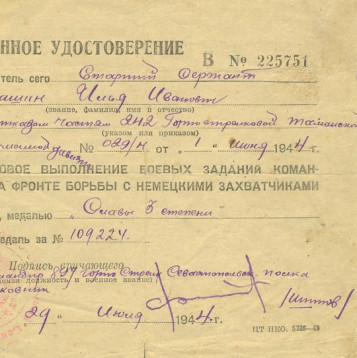 ННОЕ УДОСТОВЕРЕНИЕ
В № 225751
тель сего Старший Сержант
ашин Илья Иванович
(звание, фамилия, имя и отчество)
частям 242 Горно стрелковой Таманской
(указом или приказом)
дивизии № 029/н от „1" июня 1944 г.
ЦОВОЕ ВЫПОЛНЕНИЕ БОЕВЫХ ЗАДАНИЙ КОМАН-
А ФРОНТЕ БОРЬБЫ С НЕМЕЦКИМИ ЗАХВАТЧИКАМИ
, медалью „Славы 3 степени
едаль за № 109224.
Подпись вручающего
андир 897 Горно Стрелк Севастопольск полка
маемая должность и военное звание)
ковник /Шиптов/
„29" Июля 1944 г.
ЦТ НКО.